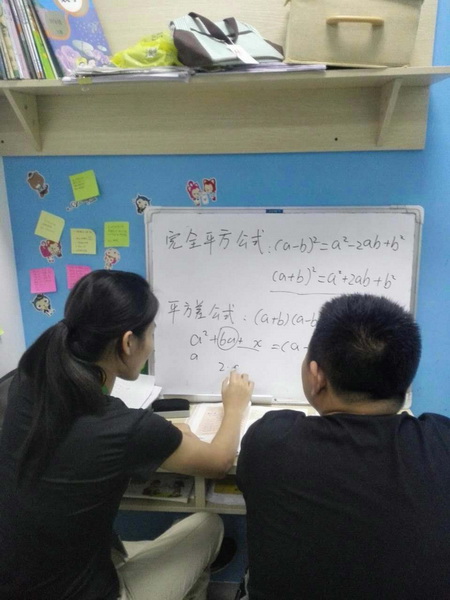 完全平方公式:(a-b)²=a²-2ab+b²
(a+b)²=a²+2ab+b²
平方差公式:(a+b)(a-b
a²+6a+ x =(a-
a
2·